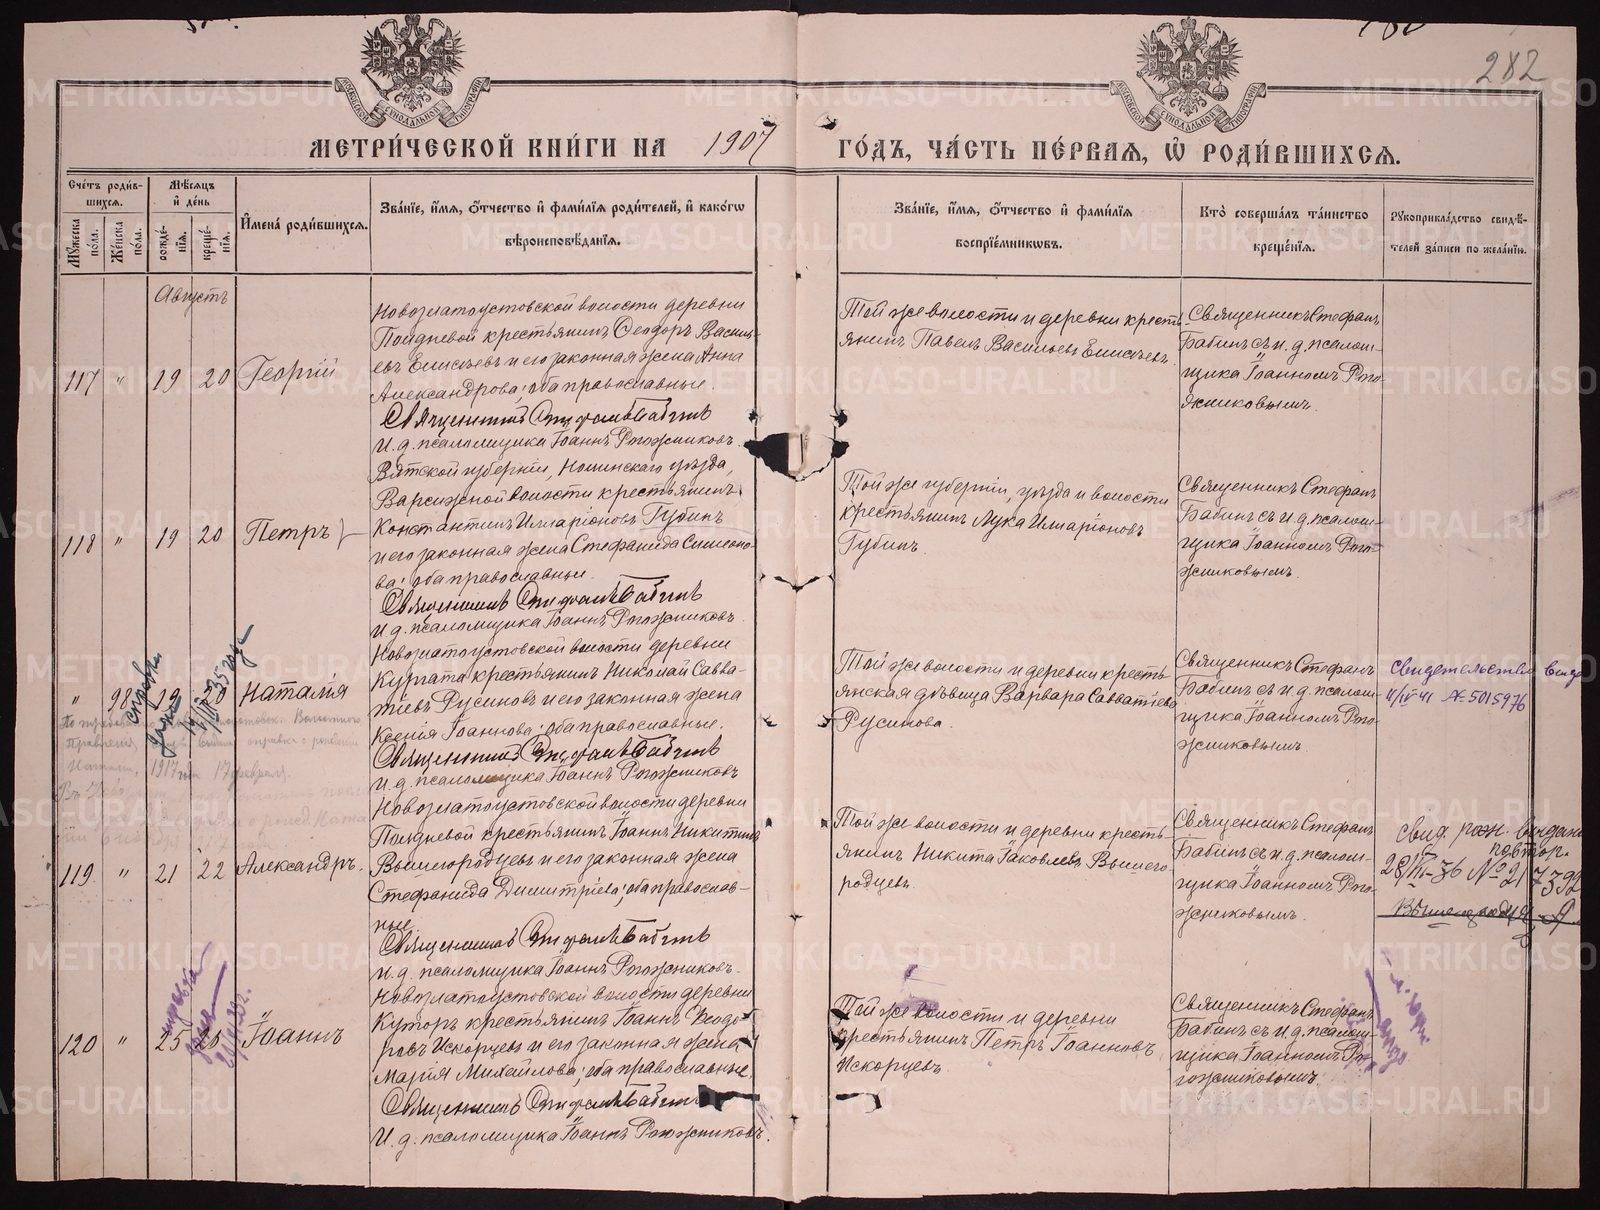 282
МЕТРИ́ЧЕСКОЙ КНИ́ГИ НА 1907 ГО́ДЪ, ЧА́СТЬ ПЕ́РВАЯ, Ѡ РОДИ́ВШИХСЯ.
Сче́тъ роди́вшихся.
Му́жеска пола.
Же́нска пола.
Мѣ́сяцъ и де́нь
рожде́нїя.
креще́нїя.
Имена́ роди́вшихся.
Зва́нїе, и́мя, ѻ́тчество и фами́лїя роди́телей, и како́гѡ
вѣроисповѣ́данїя.
Зва́нїе, и́мя, ѻ́тчество и фами́лїя
воспрїе́мникѡвъ.
Кто̀ соверша́лъ та́инство
креще́нїя.
Рукоприкла́дство свидѣ́-
телей за́писи по жела́нїю.
Августъ
117 " 19 20 Георгій
Новозлатоустовской волости деревни
Поидневой крестьянинъ Ѳеодоръ Василь-
евъ Елисѣевъ и его законная жена Анна
Александрова; оба православные.
Священникъ Стефанъ Бабинъ
И. д. псаломщика Іоаннъ Рогожниковъ.
Той же волости и деревни кресть-
янинъ Павелъ Васильевъ Елисѣевъ.
Священникъ Стефанъ
Бабинъ съ и. д. псалом-
щика Іоанномъ Рого-
жниковымъ.
118 " 19 20 Петръ
Вятской губерніи, Нолинскаго уѣзда,
Варсижной волости крестьянинъ
Константинъ Илларіоновъ Губинъ
и его законная жена Стефанида Симеоно-
ва; оба православные.
Священникъ Стефанъ Бабинъ
И. д. псаломщика Іоаннъ Рогожниковъ.
Той же губерніи, уѣзда и волости
крестьянинъ Лука Илларіоновъ
Губинъ.
Священникъ Стефанъ
Бабинъ съ и. д. псалом-
щика Іоанномъ Рого-
жниковымъ.
" 98 19 Наталія
справка
1935 года
Новозлатоустовской волости деревни
Кургата крестьянинъ Николай Савва-
тіевъ Русиновъ и его законная жена
Ксенія Іоаннова; оба православные.
Священникъ Стефанъ Бабинъ
И. д. псаломщика Іоаннъ Рогожниковъ
Той же волости и деревни кресть-
янская дѣвица Варвара Савватіева
Русинова.
Священникъ Стефанъ
Бабинъ съ и. д. псалом-
щика Іоанномъ Рого-
жниковымъ.
свидетельство
4/IV 41 № 5015976
Правленія
справка о рожденіи
1917 17 февраля.
119 " 21 22 Александръ.
Новозлатоустовской волости деревни
Поидневой крестьянинъ Іоаннъ Никитинъ
Вышегородцевъ и его законная жена
Стефанида Димитріева; оба православ-
ные.
Священникъ Стефанъ Бабинъ
И. д. псаломщика Іоаннъ Рогожниковъ.
Той же волости и деревни кресть-
янинъ Никита Іаковлевъ Вышего-
родцевъ.
Священникъ Стефанъ
Бабинъ съ и. д. псалом-
щика Іоанномъ Рого-
жниковымъ.
свид. рожд.
повтор.
120 " 25 26 Іоаннъ
справка
Новозлатоустовской волости деревни
Куторъ крестьянинъ Іоаннъ Ѳеодо-
ровъ Искорцевъ и его законная жена
Марія Михайлова; оба православные.
Священникъ Стефанъ Бабинъ
И. д. псаломщика Іоаннъ Рогожниковъ.
Той же волости и деревни
крестьянинъ Петръ Іоанновъ
Искорцевъ.
Священникъ Стефанъ
Бабинъ съ и. д. псалом-
щика Іоанномъ Ро-
гожниковымъ.
METRIKI.GASO-URAL.RU